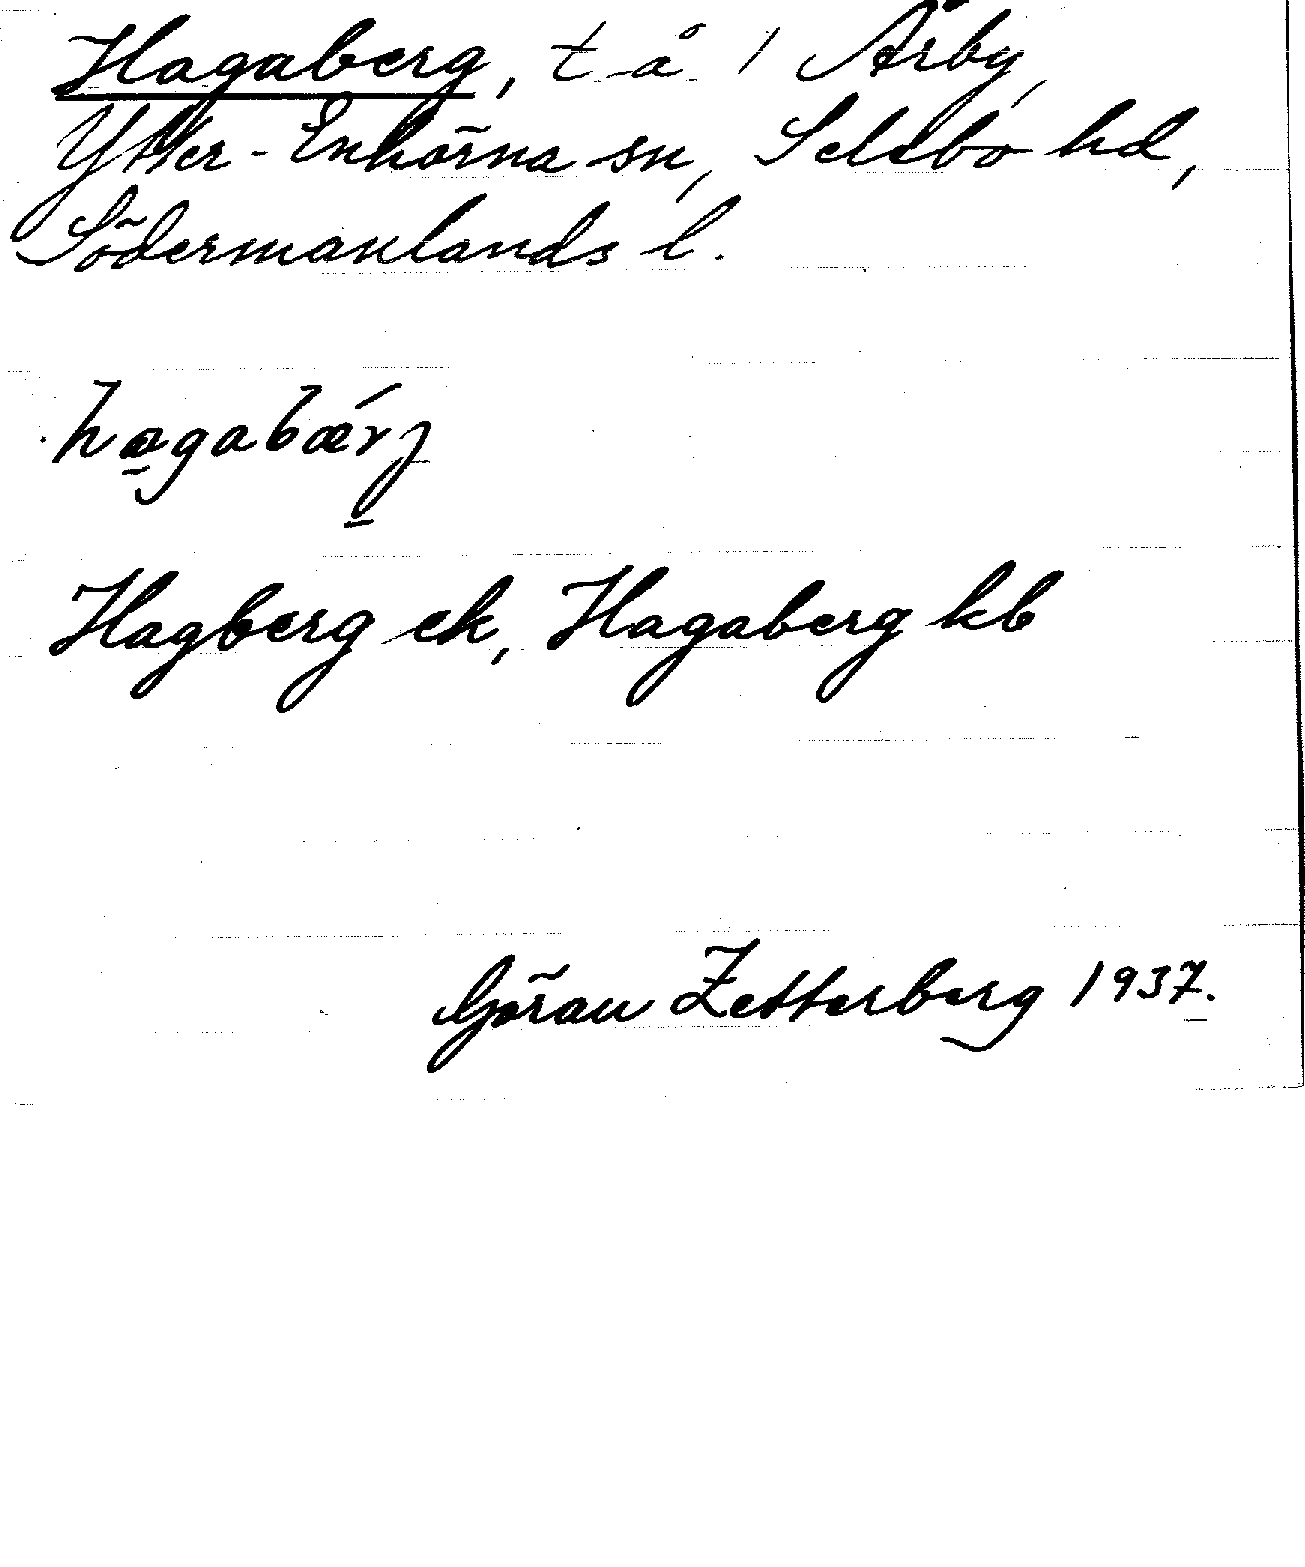 Hagaberg, t å 1 Årby,
Ytter-Enhörna sn, Selebo hd,
Södermanlands l.
hagabærj
Hagberg ek, Hagaberg kb
Göran Zetterberg 1937.